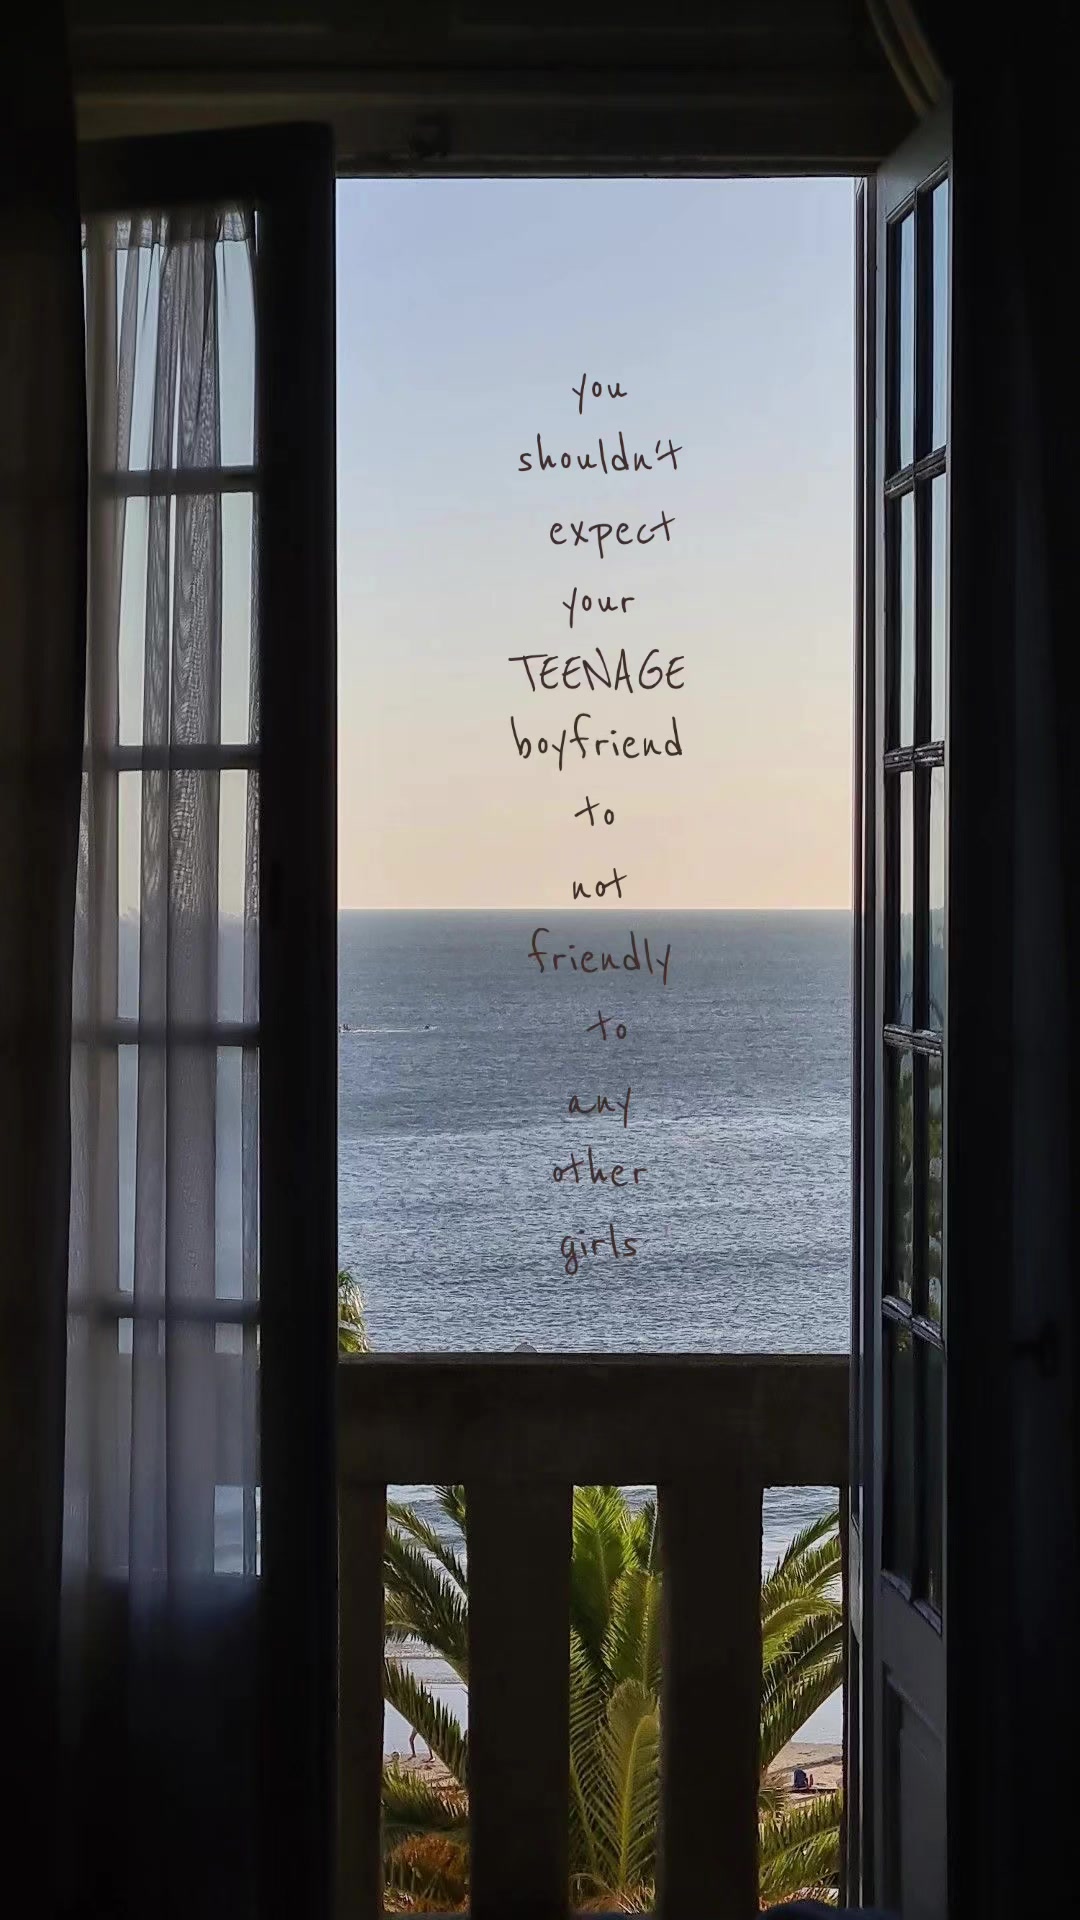 you
shouldn't
expect
your
TEENAGE
boyfriend
to
not
friendly
to
any
other
girls